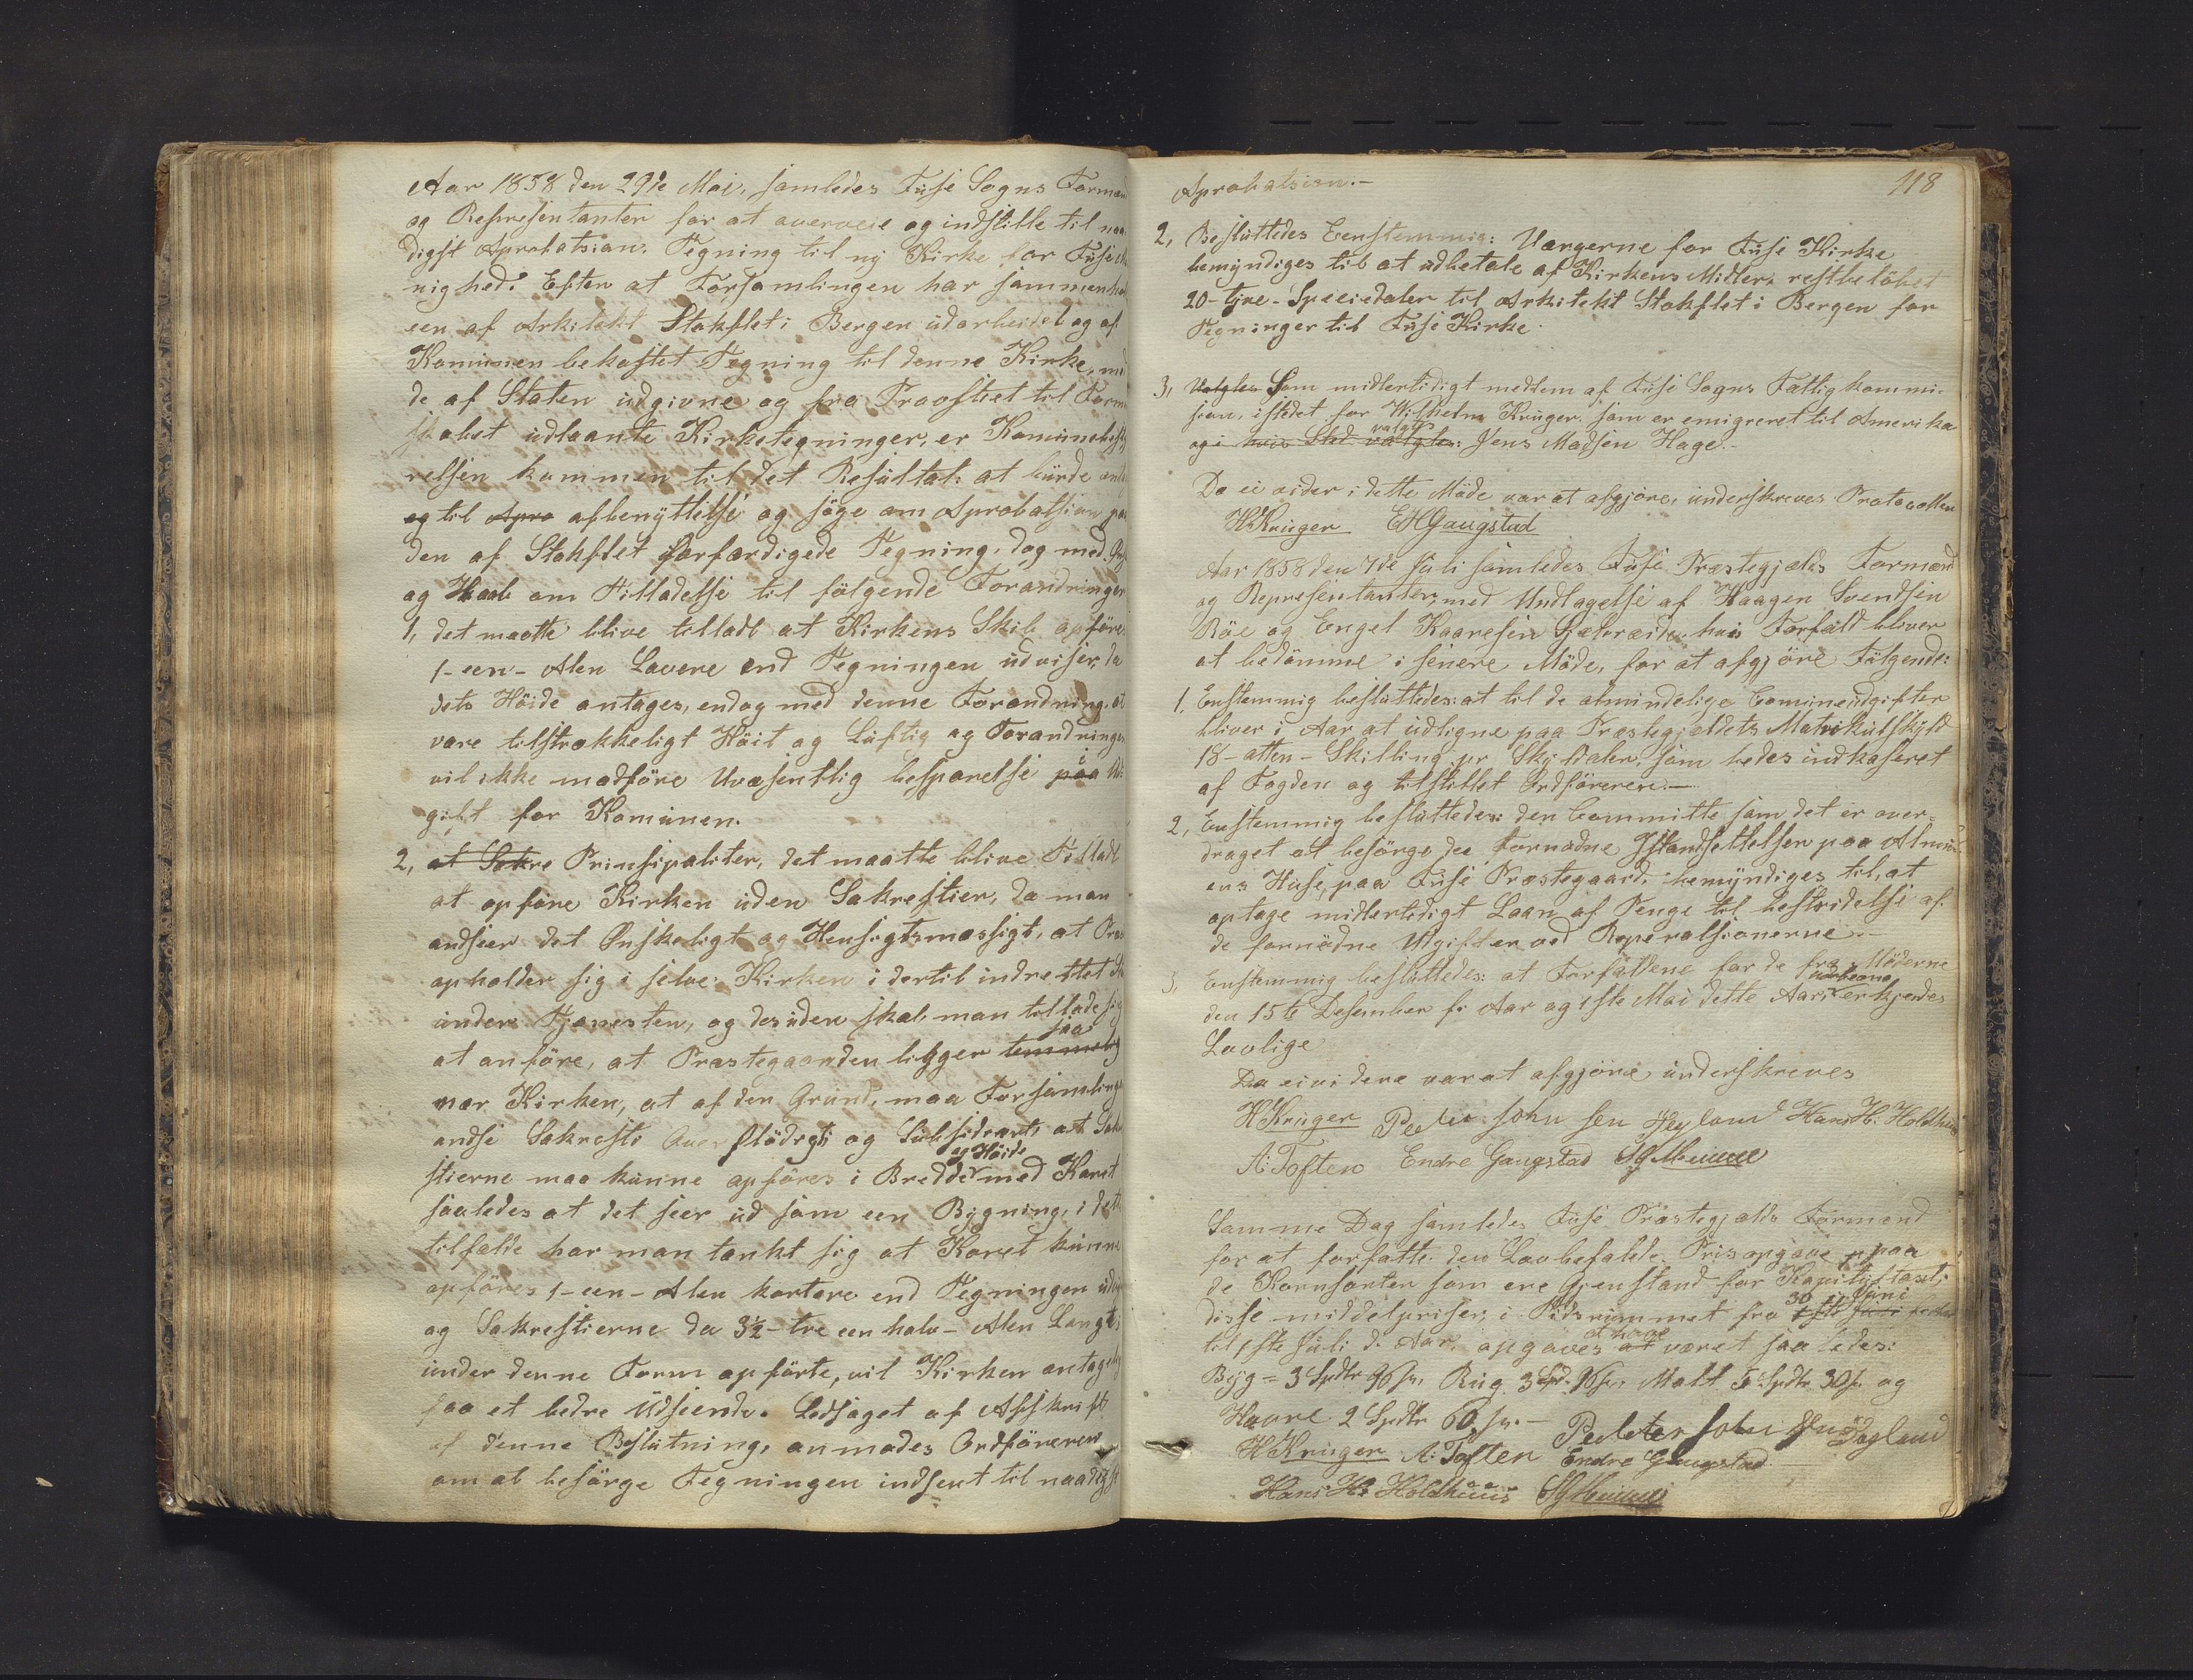 Aar 1858 den 29de Mai, samledes Fuse Sogns Formænd
og Representanter for at overveie og indstille til naa-
digst Aprobatsion. Tegning til ny Kirke for Fuse
nighed. Efter at Forsamlingen har sammenho
een af Arkitekt Stokflet i Bergen udarbeidet og af
Komunen bekostet Tegning til denne Kirke, med
de af Staten udgivne og fra Proostiet til Form
skabet udlaante Kirketegninger, er Komunebesty
relsen kommen til det Resultat: at burde ant
og til Apro afbenyttelse og søge om Aprobatsion paa
den af Stokflet forfærdigede Tegning, dog med
og Haab om Tilladelse til følgende Forandringer
1, det maatte blive tilladt at Kirkens Skib opføres
1-een- Alen Lavere end Tegningen udviser, da
dets Høide antages, endog med denne Forandring, at
være tilstrækkeligt Høit og Luftig og Forandringen
vil ikke medføre Uvæsentlig besparelse i paa Ud
gift for Komunen.
2, at Sakre Prinsipaliter, det maatte blive Tilladt
at opføre Kirken uden Sakrestier, da man
andseer det Ønskeligt og Hensigtsmæssigt, at Præ
opholder sig i selve Kirken i dertil indrettet
under Tjenesten, og desuden skal man tillade sig
at anføre, at Præstegaarden ligger saa temmelig
nær Kirken, at af den Grund, maa Forsamlinge
andse Sakresti Overflødigt og Subsiderært at Sak
stierne maa kunne opføres i Bredde og Høide med Koret
saaledes at det seer ud som een Bygning, i dette
tilfælde har man tænkt sig at Koret kunne
opføres 1-een- Alen kortere end Tegningen udvi
og Sakrestierne da 3½-tre een halv- Alen Lange,
under denne Form opførte, vil Kirken antagelig
faa et bedre Udseende. Ledsaget af Afskrift
af denne Beslutning, anmodes Ordføreren
om at besørge Tegningen indsent til naadigst
118
Aprobatsion.-
2, Besluttedes Eenstemmig: Værgerne for Fuse Kirke
bemyndiges til at udbetale af Kirkens Midler, restbeløbet
20-tyve- Speciedaler til Arkitekt Stokflet i Bergen for
Tegninger til Fuse Kirke.
3, Valgtes Som midlertidigt medlem af Fuse Sogns Fattigkommi-
sion, istedet for Wilhelm Krüger, som er emigreret til Amerika
og i hvis Sted valgtes valgtes: Jens Madsen Hage.-
Da ei vider i dette Møde var at afgjøre, underskreves Protocollen
H Krüger EHGaugstad
Aar 1858 den 7de Juli samledes Fuse Præstegjælds Formænd
og Representanter, med Undtagelse af Haagen Svendsen
Røe og Engel Kaaresen hvis Forfald bliver
at bedømme i senere Møde, for at afgjøre Følgende:
1, Enstemmig besluttedes: at til de almindelige Comuneudgifter
bliver i Aar at udligne paa Præstegjældets Matrikulskyld
18-atten- Skilling pr Skyldaler, som bedes indkaseret
af Fogden og tilstillet Ordføreren.-
2, Enstemmig besluttedes: den Committe som det er over-
draget at besørge de Fornødne Istandsettelser paa Almu-
ens Huse, paa Fuse Præstegaard, bemyndiges til, at
optage midlertidigt Laan af Penge til bestridelse af
de fornødne Udgifter ved Reperatsionerne.-
3, Enstemmig besluttedes: at Forfaldene for de fra Møderne
den 15te Desember f. Aar og 1ste Mai dette Aar, erkjendes
Lovlige
Da ei videre var at afgjøre underskreves
H Krüger Peder Johnsen Øgland Hans H. Holdhuus
A. Toften Endre Gaugstad
Samme Dag samledes Fuse Præstegjælds Formænd
for at forfatte den Lovbefalede Prisopgave paa
de Kornsorter som ere Gjenstand for Kapitelstaxt,
disse middelpriser, i Tidsrummet fra 30 Juni 1ste Juli
til 1ste Juli d. Aar, opgaves at have at været saaledes:
Byg = 3 Spdlr 96 s., Rug 3 Spd. 96 s., Malt 5 Spdlr 30 s. og
Havre 2 Spdlr 60 s.-
Peder Johnsen Øgland
H Krüger A. Toften Endre Gaugstad
Hans H. Holdhuus